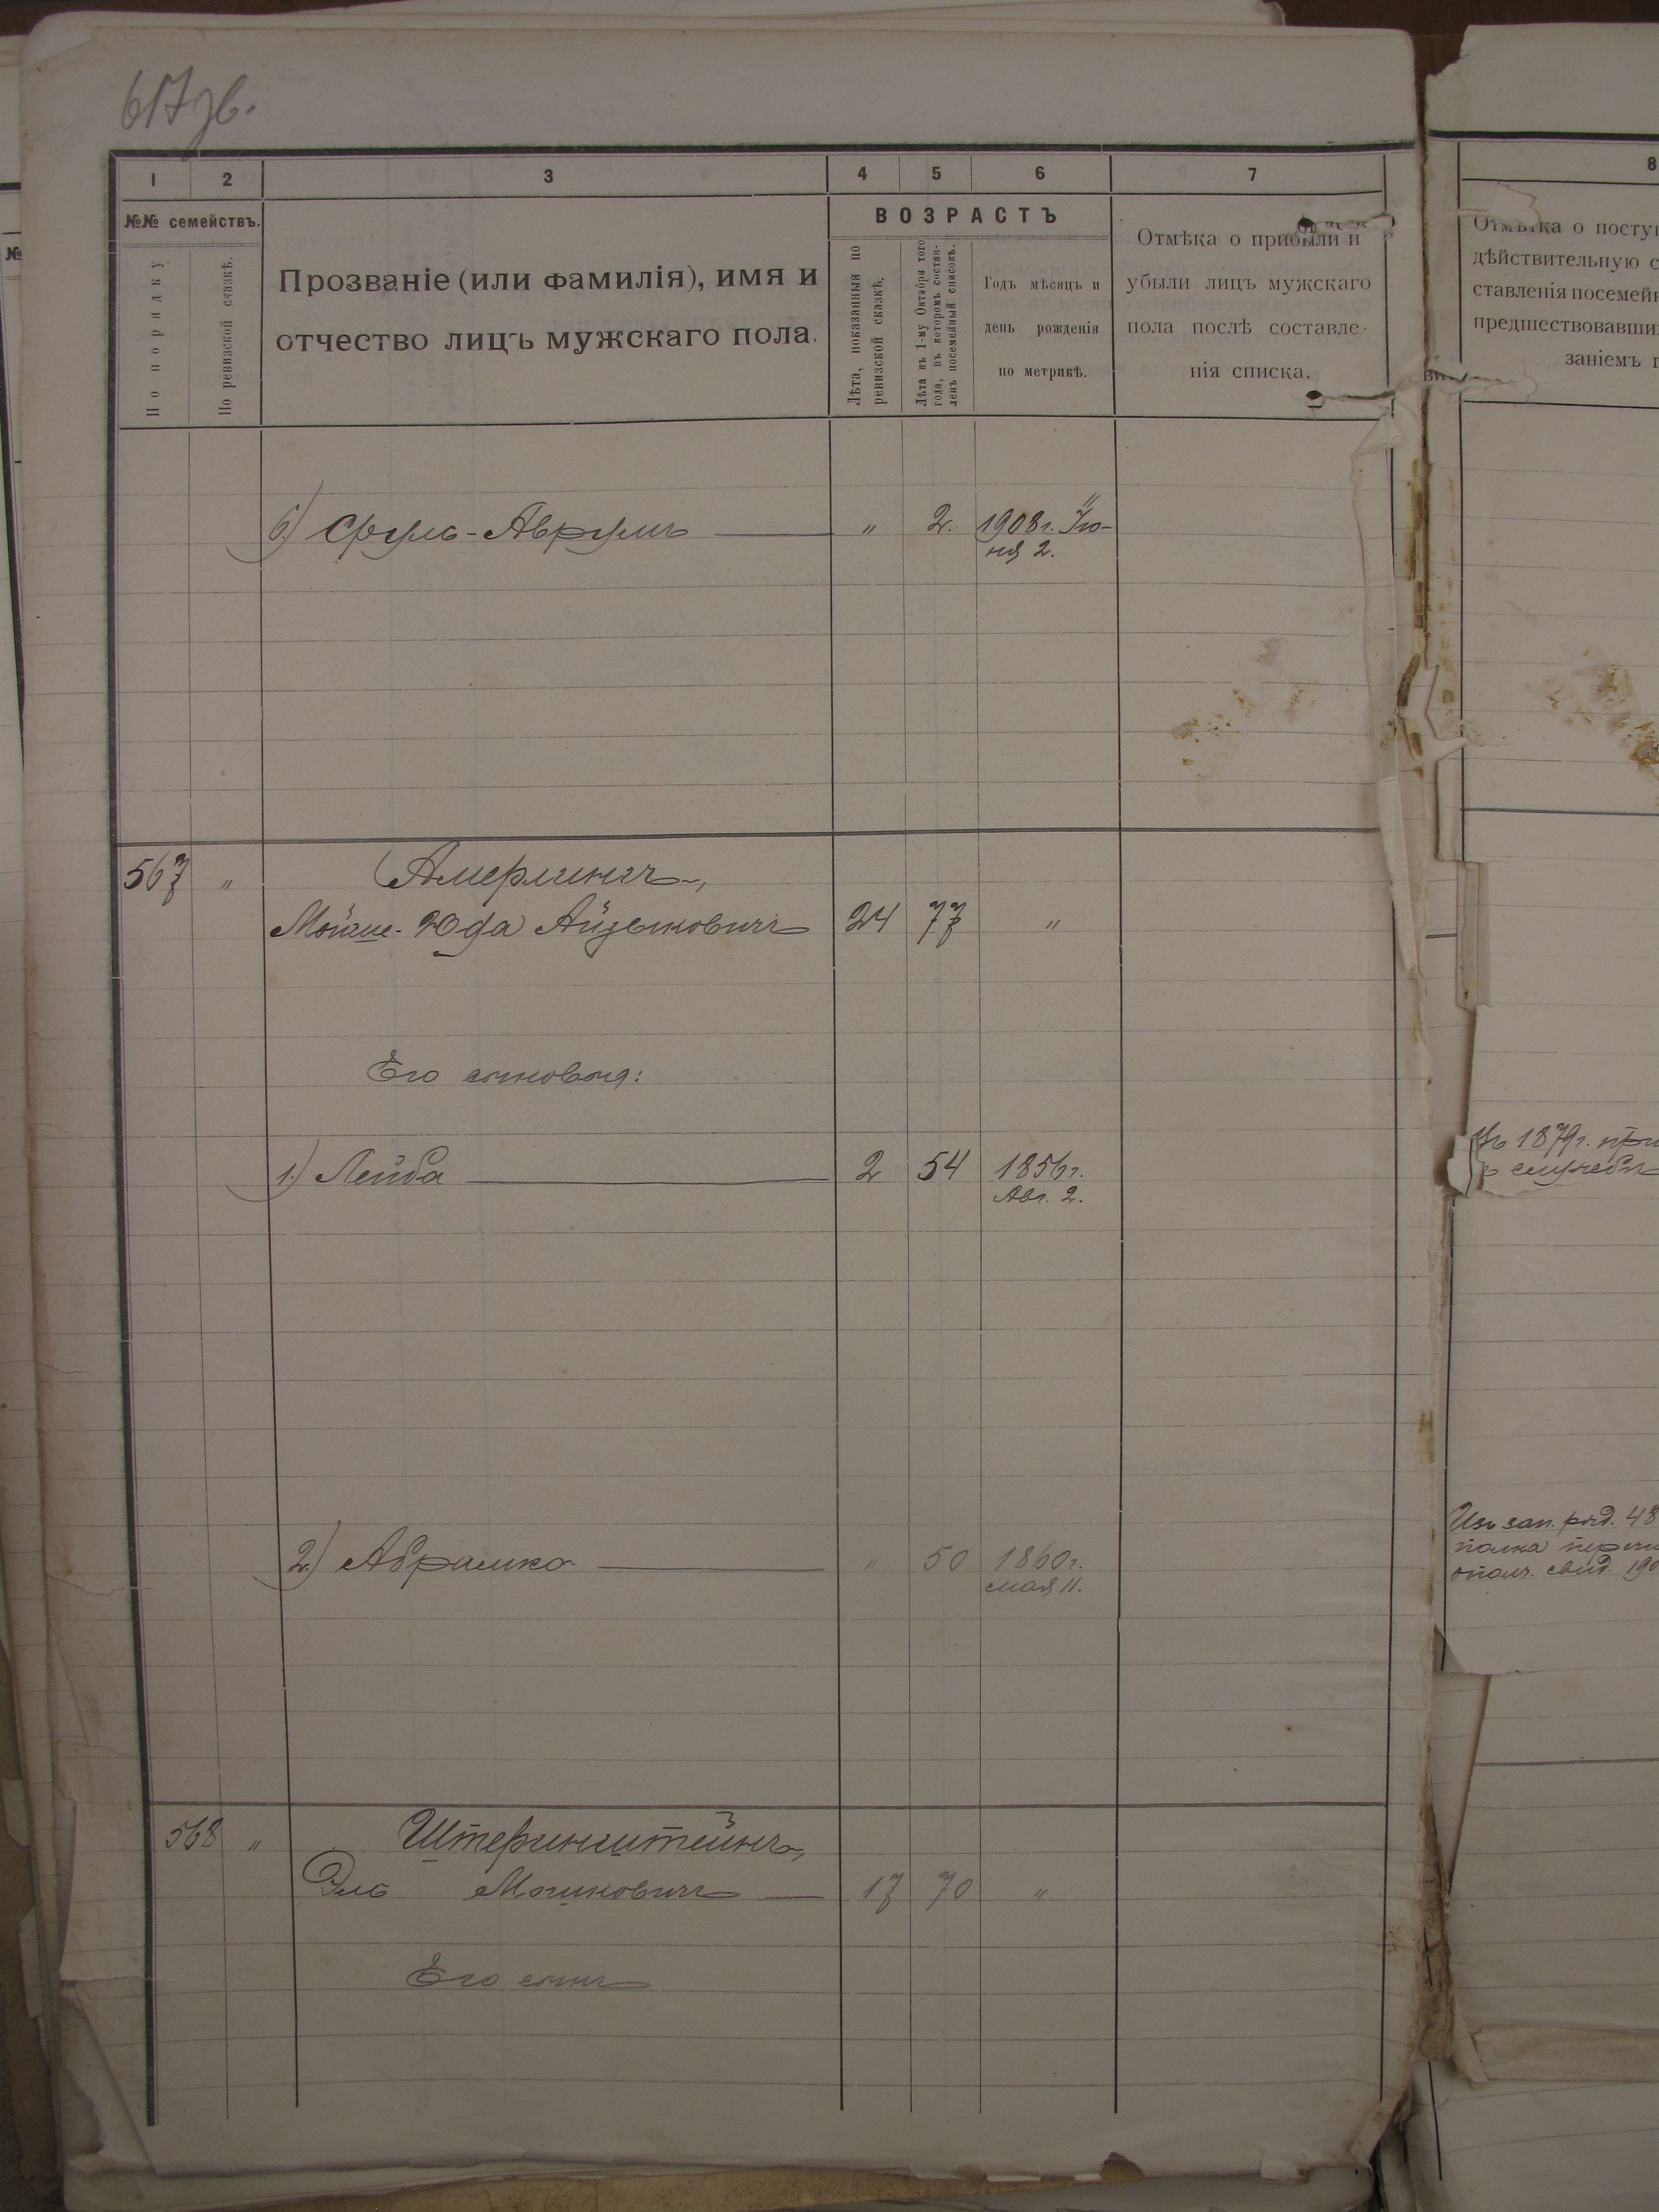 617 зв.
1 2 3 4 5 6 7 8
№№ семействъ.
По порядку
По ревизской сказкѣ.
Прозваніе (или фамилія), имя и
отчество лицъ мужскаго пола.
ВОЗРАСТЪ
Лѣта, показанныя по
ревизской сказкѣ.
Лѣта къ 1-му Октября того
года, въ которомъ состав-
ленъ посемейный списокъ.
Годъ мѣсяцъ и
день рожденія
по метрикѣ.
Отмѣка о прибыли и
убыли лицъ мужскаго
пола послѣ составле-
нія списка.
Отмѣтка о посту
дѣйствительную с
ставленія посемей
предшествовавши
заніемъ
6.) Сруль-Аврумъ " 2. 1908 г. Iю-
ня 2.
567 " Амерлингъ,
Мойше-Юда Айзыковичъ 24 77 "
Его сыновья:
1.) Лейба 2 54 1856 г.
Авг. 2.
Въ 1879 г. при
службы
2.) Абрамко " 50 1860 г.
мая 11.
Изъ зап. ряд. 48
полка перечи
ополч. свид. 190
568 " Штеринштейнъ,
Эль Мошковичъ 17 70 "
Его сынъ